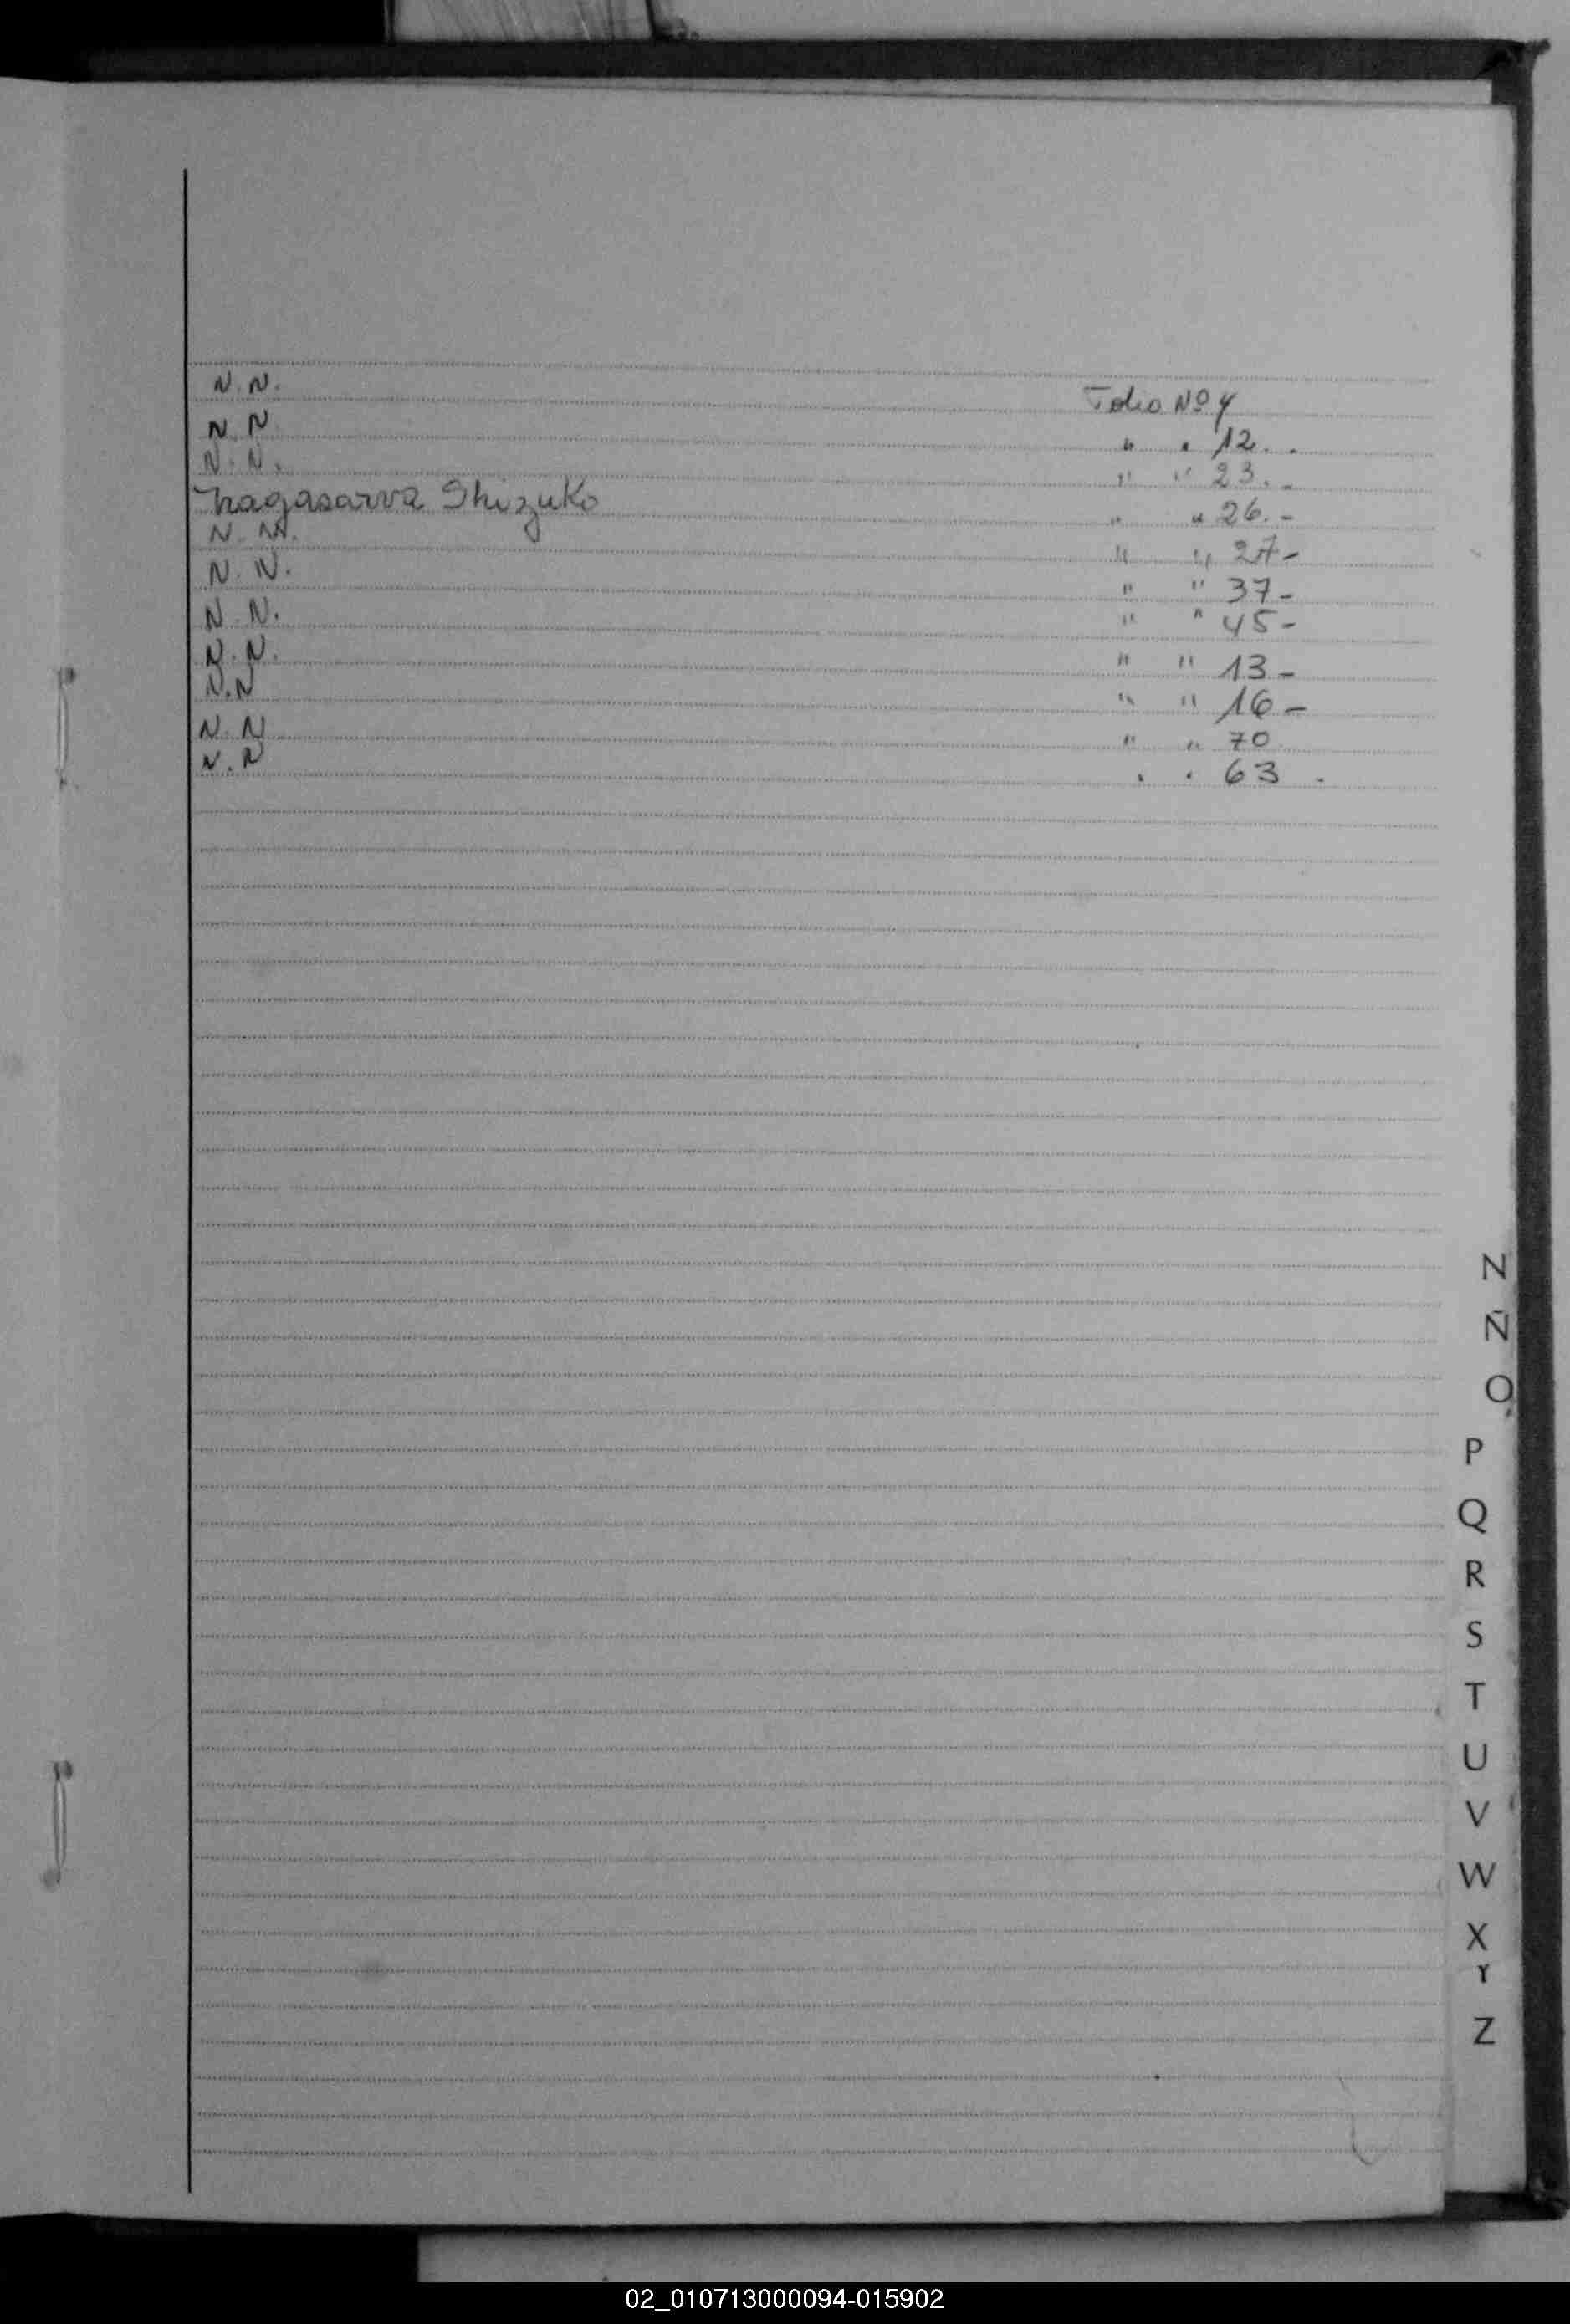 N. N. Folio Nº 4
N. N " " 12. -
N. N. " " 23. -
Nagasawa Shizuko " " 26. -
N. N. " " 27 -
N. N. " " 37 -
N. N. " " 45 -
N. N. " " 13 -
N. N " " 16 -
N. N " " 70
N. N " " 63 -
N
Ñ
O
P
Q
R
S
T
U
V
W
X
Y
Z
02_010713000094-015902